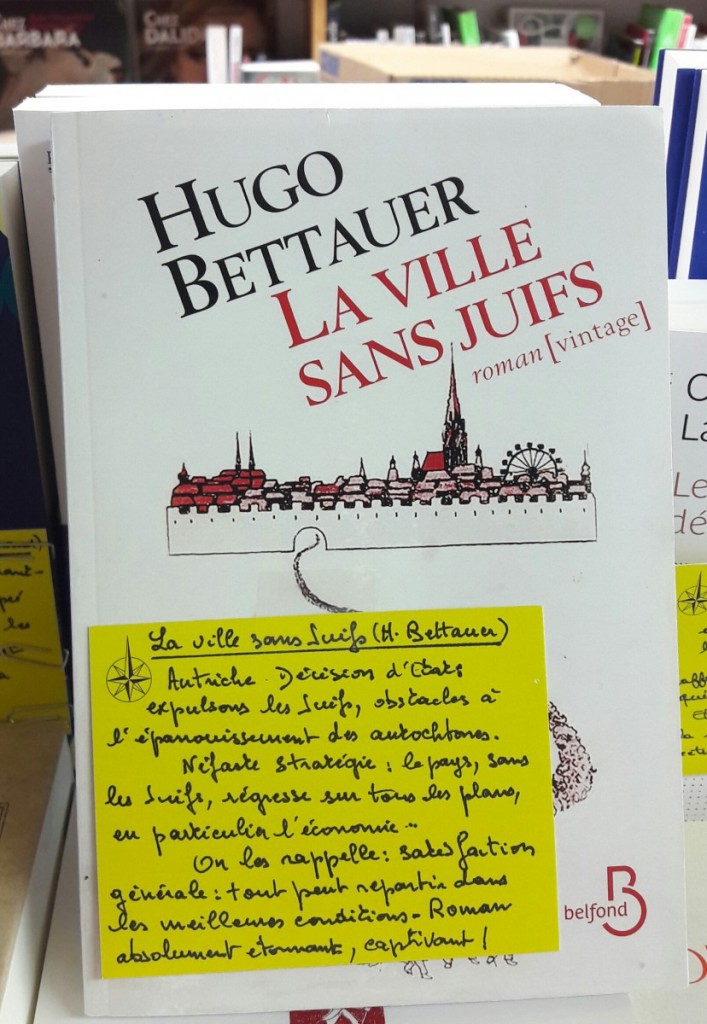 CHEZ
BARBARA
CHEZ
DALIDA
HUGO
BETTAUER
LA VILLE
SANS JUIFS
roman [vintage]
La ville sans Juifs (H. Bettauer)
Autriche. Décision d'Etat:
expulsons les Juifs, obstacles à
l'épanouissement des autochtones.
Néfaste stratégie : le pays, sans
les Juifs, régresse sur tous les plans,
en particulier l'économie...
On les rappelle : satisfaction
générale : tout peut repartir dans
les meilleures conditions. Roman
absolument étonnant, captivant !
belfond
La
Le
dé